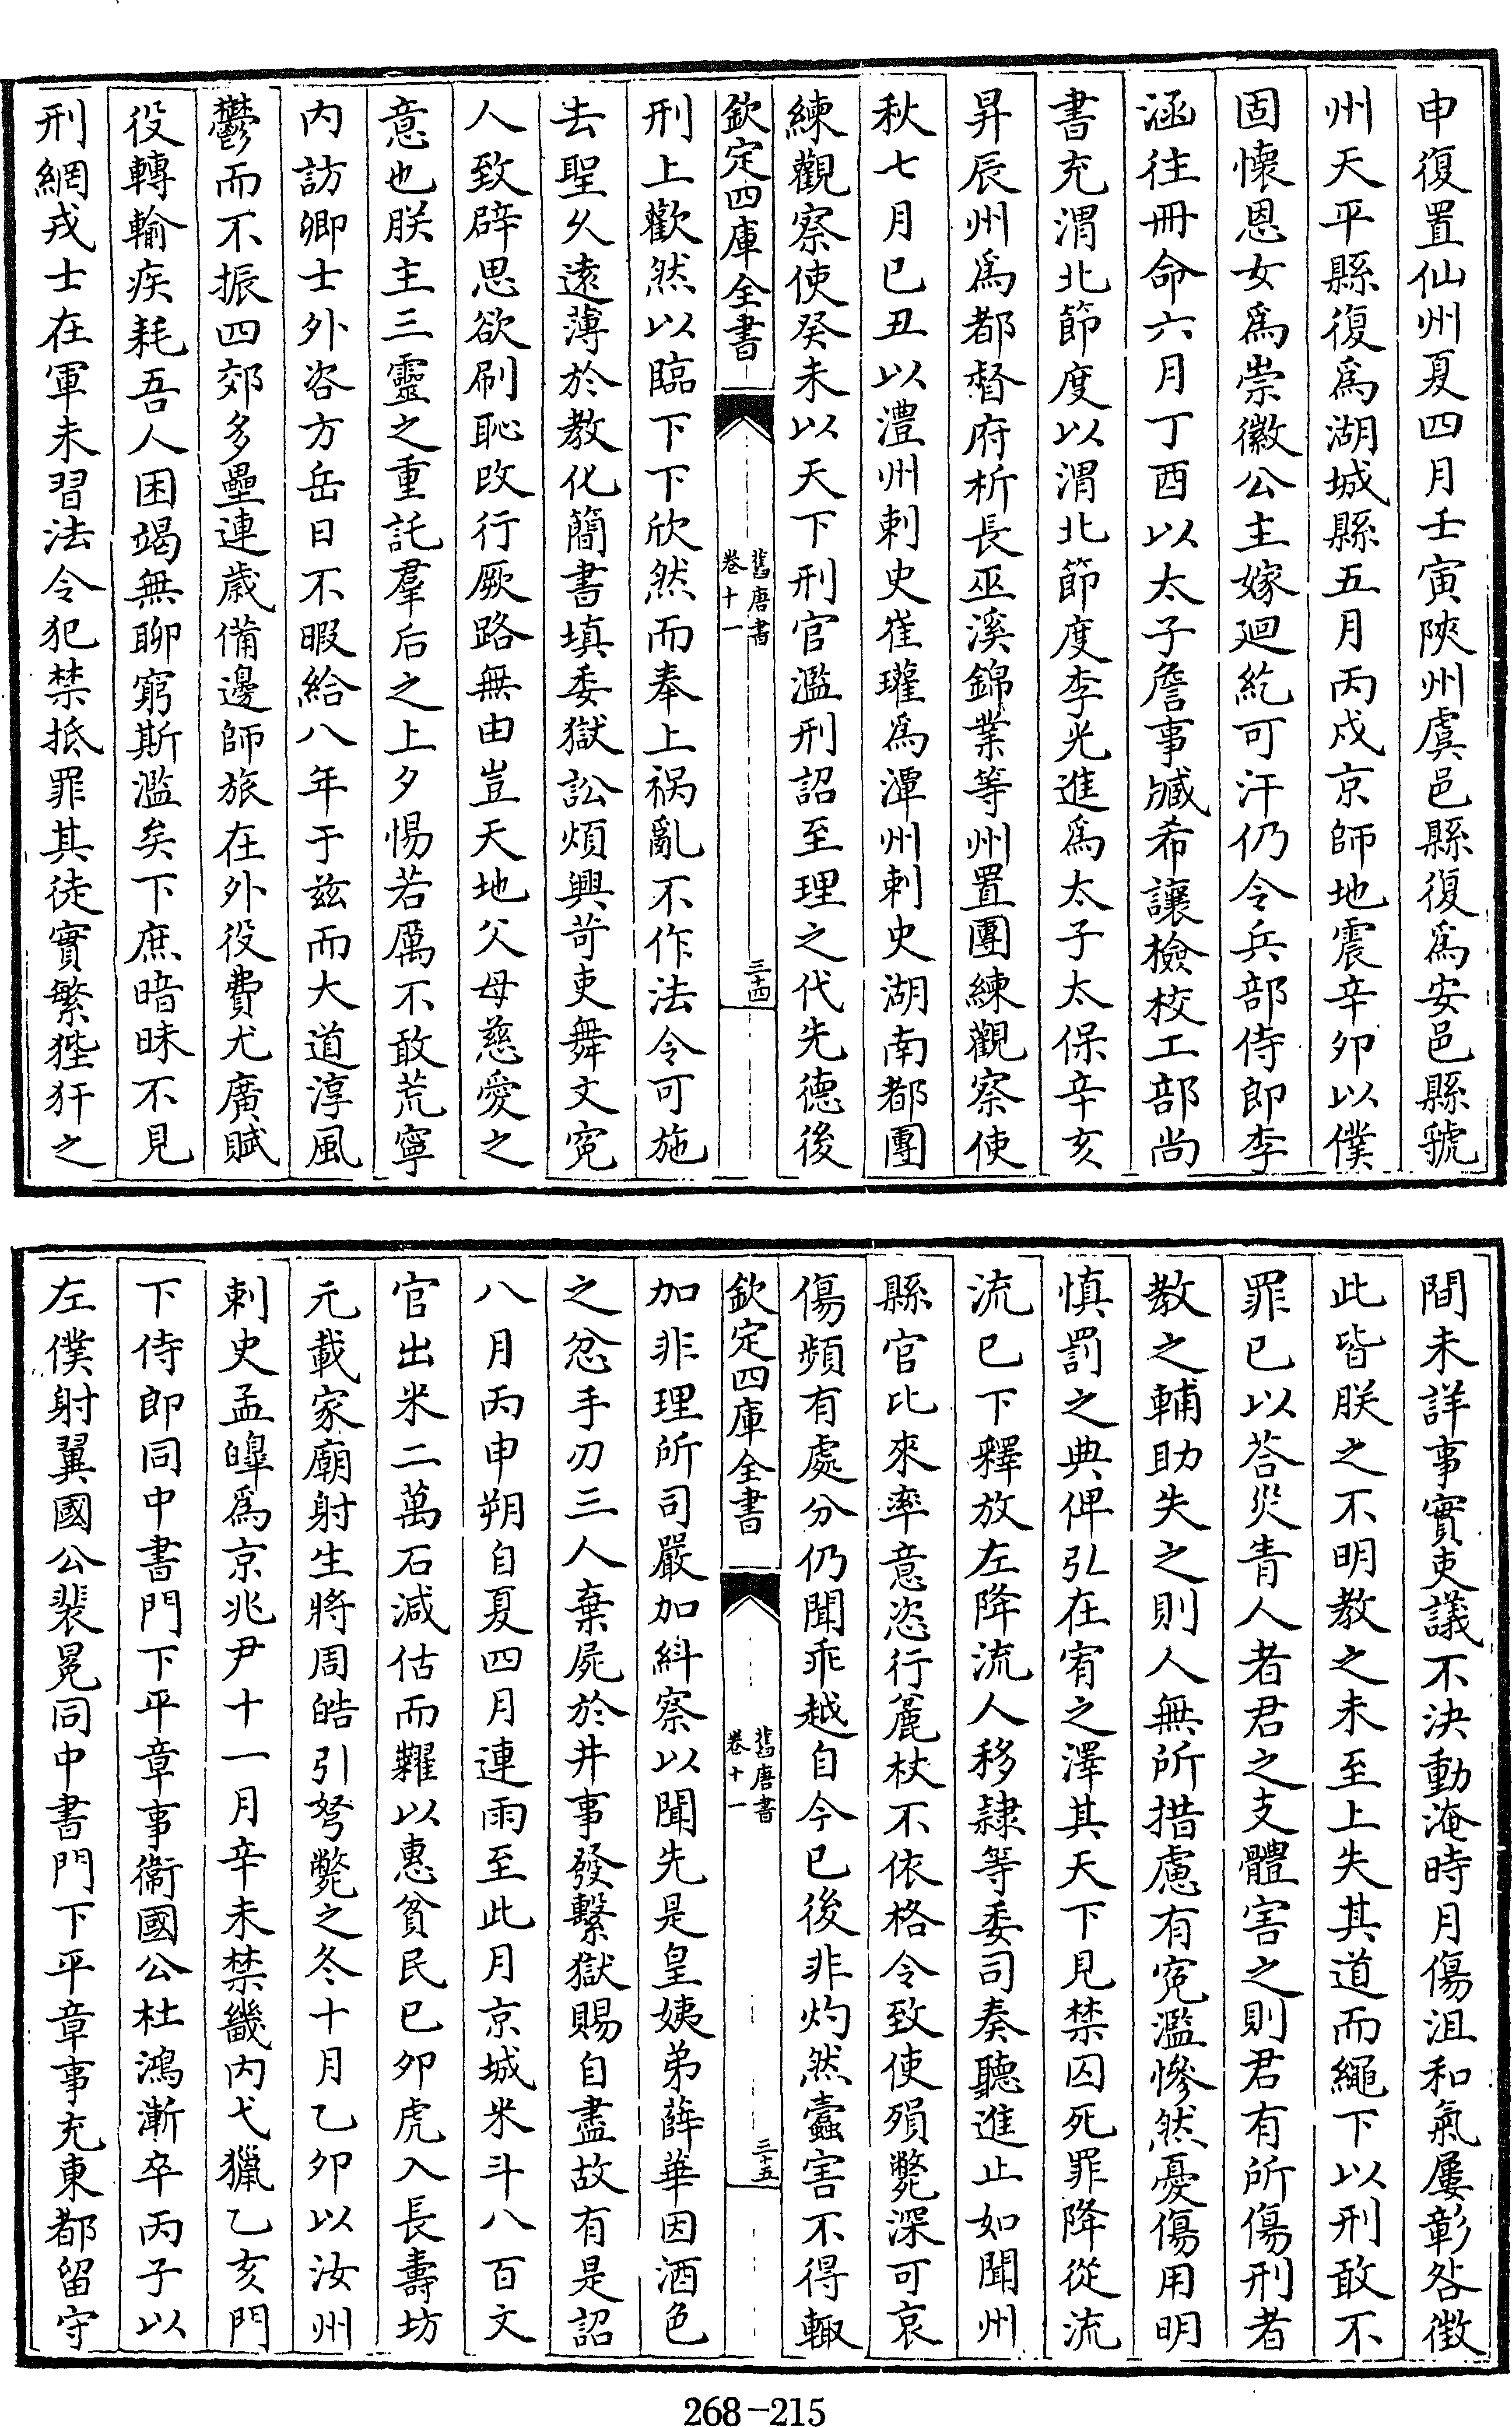 申復置仙州夏四月壬寅陜州虞邑縣復爲安邑縣虢
州天平縣復爲湖城縣五月丙戍京師地震辛卯以僕
固懷恩女爲崇徽公主嫁廻紇可汗仍令兵部侍郎李
涵往冊命六月丁酉以太子詹事臧希讓檢校工部尚
書充渭北節度以渭北節度李光進爲太子太保辛亥
昇辰州爲都督府析長巫溪錦業等州置團練觀察使
秋七月已丑以澧州刺史崔瓘爲潭州刺史湖南都團
練觀察使癸未以天下刑官濫刑詔至理之代先德後
欽定四庫全書
舊唐書
卷十一
三十四
刑上歡然以臨下下欣然而奉上禍亂不作法令可施
去聖久遠薄於教化簡書填委獄訟煩興苛吏舞文寃
人致辟思欲刷恥改行厥路無由豈天地父母慈愛之
意也朕主三靈之重託羣后之上夕惕若厲不敢荒寧
内訪卿士外咨方岳日不暇給八年于兹而大道淳風
鬱而不振四郊多壘連歲備邊師旅在外役費尤廣賦
役轉輸疾耗吾人困竭無聊窮斯濫矣下庶暗昧不見
刑網戎士在軍未習法令犯禁抵罪其徒實繁狴犴之
間未詳事實吏議不決動淹時月傷沮和氣屢彰咎徴
此皆朕之不明教之未至上失其道而繩下以刑敢不
罪已以荅災眚人者君之支體害之則君有所傷刑者
教之輔助失之則人無所措慮有寃濫慘然憂傷用明
慎罰之典俾弘在宥之澤其天下見禁囚死罪降從流
流已下釋放左降流人移隷等委司奏聽進止如聞州
縣官比來率意恣行麄杖不依格令致使殞斃深可哀
傷頻有處分仍聞乖越自今已後非灼然蠹害不得輙
欽定四庫全書
舊唐書
卷十一
三十五
加非理所司嚴加糾察以聞先是皇姨弟薛華因酒色
之忿手刃三人棄屍於井事發繫獄賜自盡故有是詔
八月丙申朔自夏四月連雨至此月京城米斗八百文
官出米二萬石減估而糶以惠貧民已卯虎入長壽坊
元載家廟射生將周皓引弩斃之冬十月乙卯以汝州
刺史孟皥爲京兆尹十一月辛未禁畿内弋獵乙亥門
下侍郎同中書門下平章事衞國公杜鴻漸卒丙子以
左僕射翼國公裴冕同中書門下平章事充東都留守
268-215